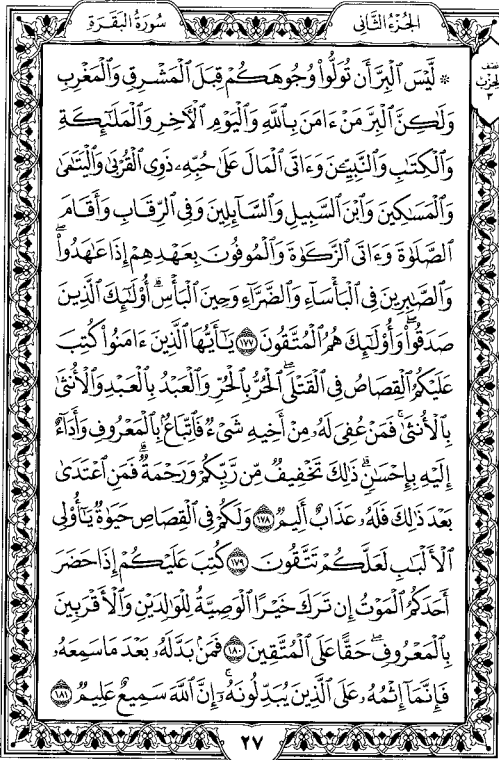 الجزء الثاني
سورة البقرة
نصف
الحزب
٣
۞ لَّيْسَ ٱلْبِرَّ أَن تُوَلُّوا۟ وُجُوهَكُمْ قِبَلَ ٱلْمَشْرِقِ وَٱلْمَغْرِبِ
وَلَٰكِنَّ ٱلْبِرَّ مَنْ ءَامَنَ بِٱللَّهِ وَٱلْيَوْمِ ٱلْءَاخِرِ وَٱلْمَلَٰٓئِكَةِ
وَٱلْكِتَٰبِ وَٱلنَّبِيِّۦنَ وَءَاتَى ٱلْمَالَ عَلَىٰ حُبِّهِۦ ذَوِى ٱلْقُرْبَىٰ وَٱلْيَتَٰمَىٰ
وَٱلْمَسَٰكِينَ وَٱبْنَ ٱلسَّبِيلِ وَٱلسَّآئِلِينَ وَفِى ٱلرِّقَابِ وَأَقَامَ
ٱلصَّلَوٰةَ وَءَاتَى ٱلزَّكَوٰةَ وَٱلْمُوفُونَ بِعَهْدِهِمْ إِذَا عَٰهَدُوا۟ ۖ
وَٱلصَّٰبِرِينَ فِى ٱلْبَأْسَآءِ وَٱلضَّرَّآءِ وَحِينَ ٱلْبَأْسِ ۗ أُو۟لَٰٓئِكَ ٱلَّذِينَ
صَدَقُوا۟ ۖ وَأُو۟لَٰٓئِكَ هُمُ ٱلْمُتَّقُونَ ١٧٧ يَٰٓأَيُّهَا ٱلَّذِينَ ءَامَنُوا۟ كُتِبَ
عَلَيْكُمُ ٱلْقِصَاصُ فِى ٱلْقَتْلَى ۖ ٱلْحُرُّ بِٱلْحُرِّ وَٱلْعَبْدُ بِٱلْعَبْدِ وَٱلْأُنثَىٰ
بِٱلْأُنثَىٰ ۚ فَمَنْ عُفِىَ لَهُۥ مِنْ أَخِيهِ شَىْءٌ فَٱتِّبَاعٌۢ بِٱلْمَعْرُوفِ وَأَدَآءٌ
إِلَيْهِ بِإِحْسَٰنٍ ۗ ذَٰلِكَ تَخْفِيفٌ مِّن رَّبِّكُمْ وَرَحْمَةٌ ۗ فَمَنِ ٱعْتَدَىٰ
بَعْدَ ذَٰلِكَ فَلَهُۥ عَذَابٌ أَلِيمٌ ١٧٨ وَلَكُمْ فِى ٱلْقِصَاصِ حَيَوٰةٌ يَٰٓأُو۟لِى
ٱلْأَلْبَٰبِ لَعَلَّكُمْ تَتَّقُونَ ١٧٩ كُتِبَ عَلَيْكُمْ إِذَا حَضَرَ
أَحَدَكُمُ ٱلْمَوْتُ إِن تَرَكَ خَيْرًا ٱلْوَصِيَّةُ لِلْوَٰلِدَيْنِ وَٱلْأَقْرَبِينَ
بِٱلْمَعْرُوفِ ۖ حَقًّا عَلَى ٱلْمُتَّقِينَ ١٨٠ فَمَنۢ بَدَّلَهُۥ بَعْدَ مَا سَمِعَهُۥ
فَإِنَّمَآ إِثْمُهُۥ عَلَى ٱلَّذِينَ يُبَدِّلُونَهُۥٓ ۚ إِنَّ ٱللَّهَ سَمِيعٌ عَلِيمٌ ١٨١
٢٧